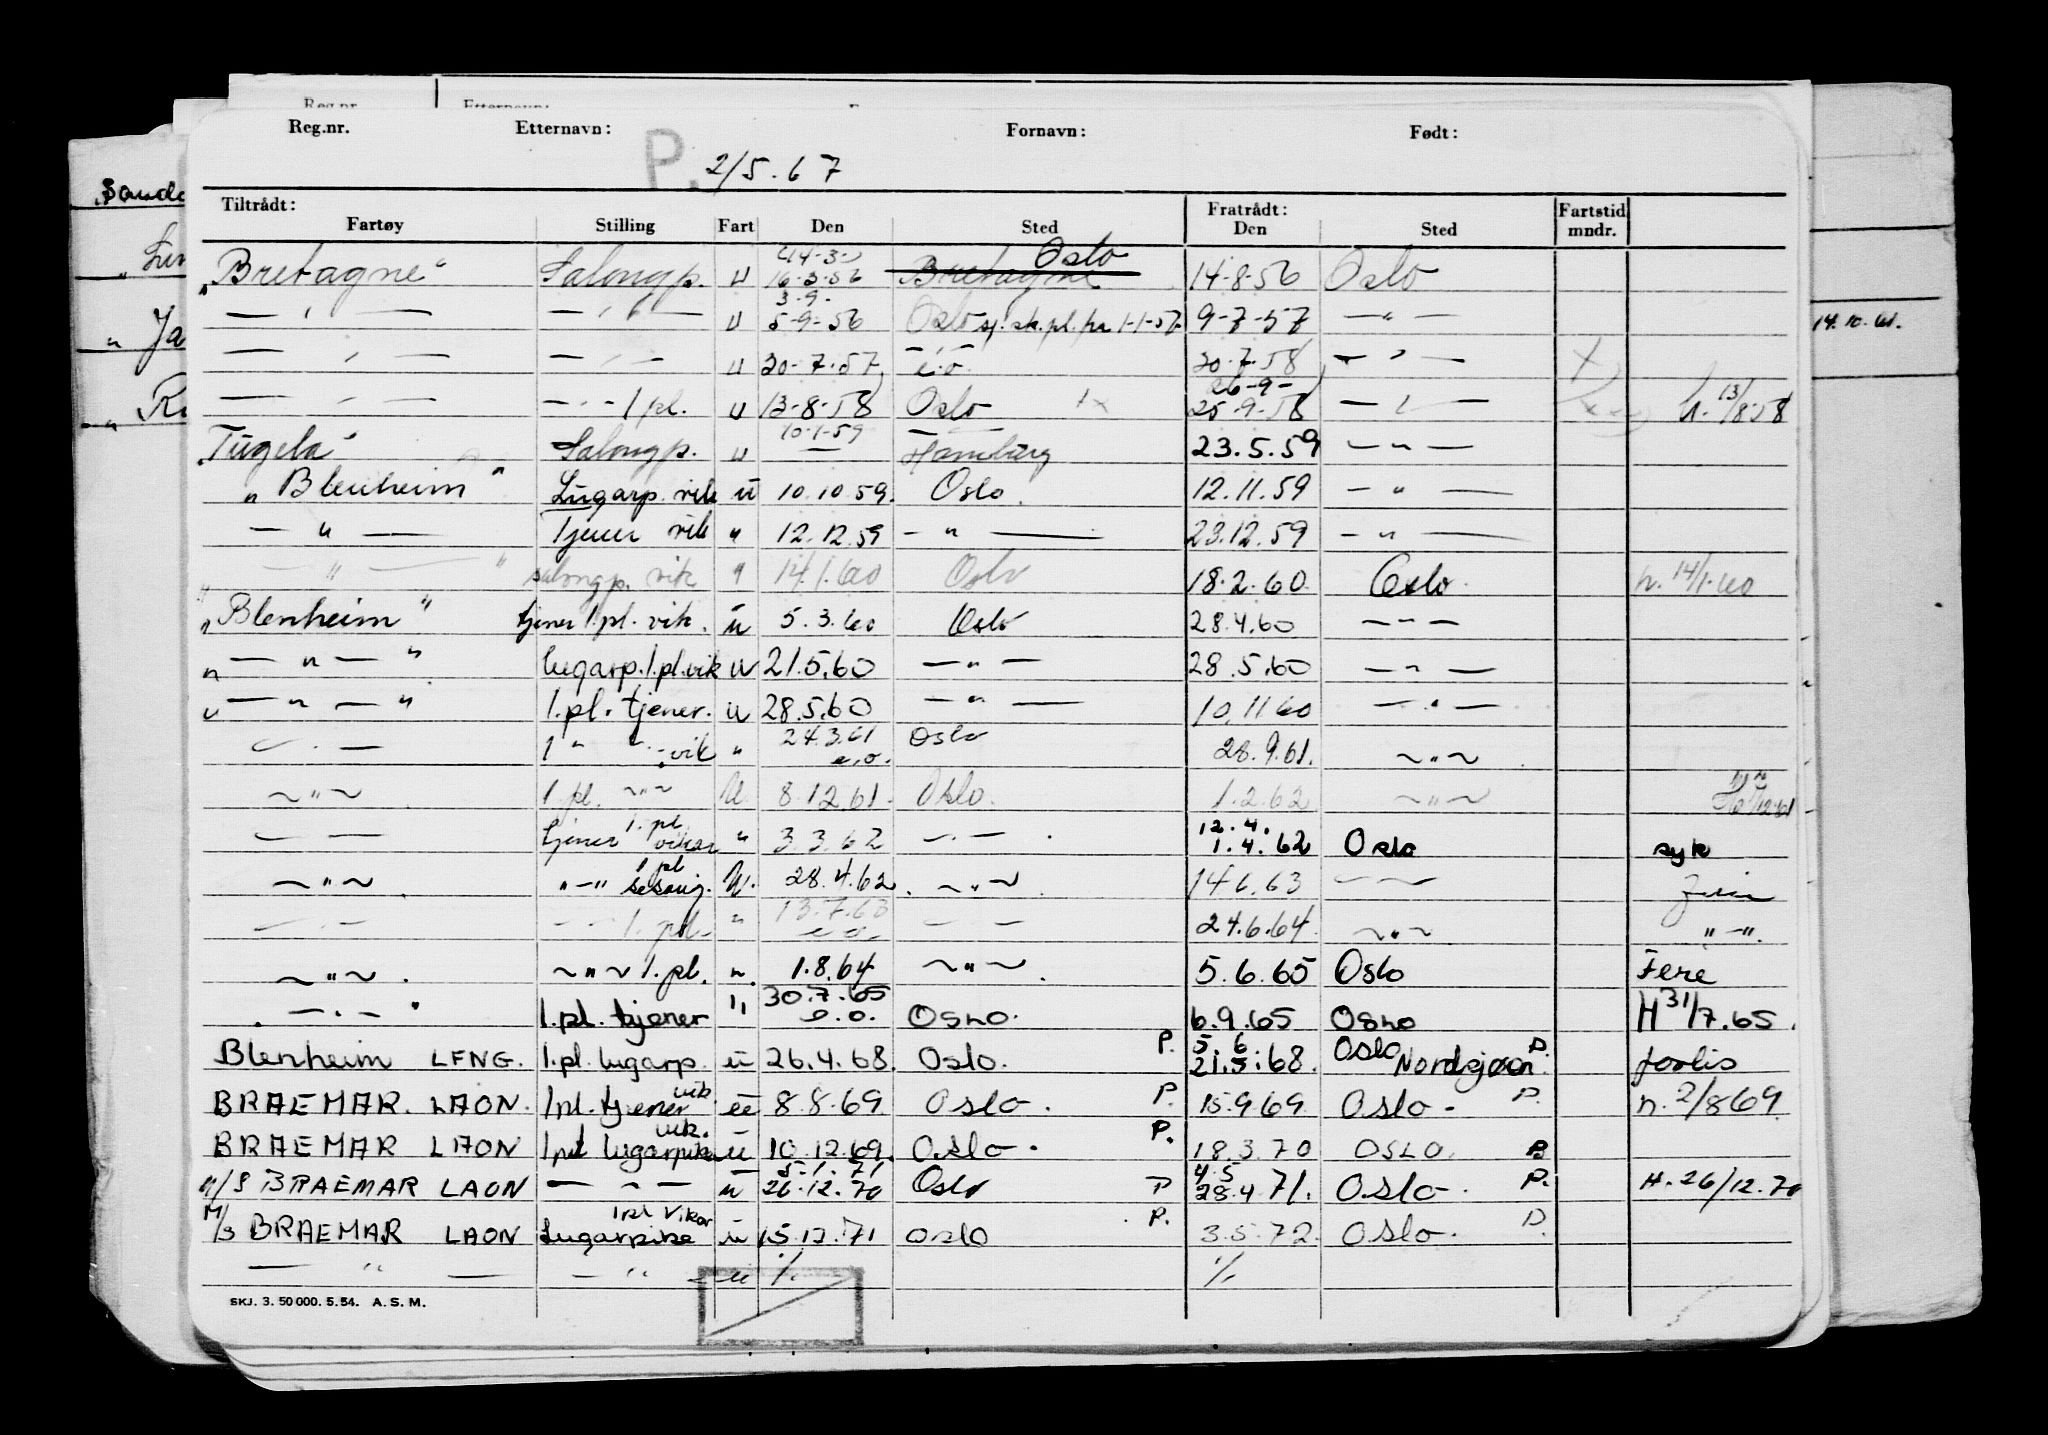 Reg.nr. Etternavn: Fornavn: Født:
P. 2/5.67
Tiltrådt: Fratrådt: Fartstid
Fartøy Stilling Fart Den Sted Den Sted mndr.
14-3- Oslo
"Bretagne" Salongp. u 16-3-56 Bretagne 14-8-56 Oslo
3-9-
— " — — " — u 5-9-56 Oslo sj. sk. pl. fra 1-1-57 9-7-57 — " —
— " — — " — u 20-7-57 e.o. 20-7-58 — " —
26-9-
— " — — " — 1 pl. u 13-8-58 Oslo 25-9-58 — " — h. 13/8-58
10-1-59
"Tugela" Salongp. u — Hamburg 23.5.59 — " —
"Blenheim" Lugarp. vik u 10.10.59. Oslo. 12.11.59 — " —
— " — Tjener vik " 12.12.59 — " — 23.12.59 — " —
" — " — " salongp. vik " 14.1.60 Oslo 18.2.60 Oslo. h. 14/1.60
"Blenheim" tjener 1.pl. vik. u 5.3.60 Oslo 28.4.60 — " —
" — " — " lugarp. 1.pl. vik u 21.5.60 — " — 28.5.60 — " —
" — " — " 1.pl. tjener. u 28.5.60 — " — 10.11 60 — " —
— " — 1 " " vik " 24.3.61 e.o. Oslo 28.9.61. ~ " ~
~ " ~ 1 pl. ~ " ~ u 8.12.61. Oslo. 1.2.62 ~ " ~
1. pl. 12.4.
— " — tjener vikar " 3.3.62 — " — 1.4.62 Oslo syk
1 pl
~ " ~ " — " sesong. u. 28.4.62 ~ " ~ 14.6.63 — " —
— " — — " — 1. pl. " 13.7.63 e.o. — — 24.6.64. ~ " ~ " — ".
~ " ~ ~ " ~ 1.pl. " 1.8.64 ~ " ~ 5.6.65 Oslo Fere
— " — " 1.pl. tjener " 30.7.65 e.o. Oslo. 6.9.65 Oslo H 31/7.65.
P. 5 6 Oslo P.
Blenheim LFNG. 1.pl. lugarp. u 26.4.68. Oslo. 21.5.68. Nordsjøen forlis
vik.
BRAEMAR. LAON. 1pl. tjener u 8.8.69. Oslo. P. 15.9.69. Oslo. P. h. 2/8 69
vik.
BRAEMAR LAON 1pl lugarpike u 10.12.69. Oslo. P. 18.3.70 OSLO. P
5.1.71 4.5
M/S BRAEMAR LAON — " — u 26.12.70 Oslo P 28.4.71. Oslo. P. H. 26/12.70
1pl Vikar
M/S BRAEMAR LAON Lugarpike u 15.12.71 Oslo P. 3.5.72. Oslo. P.
— " — — " — u %. %.
SKJ. 3. 50 000. 5.54. A.S.M.
14.10.61.